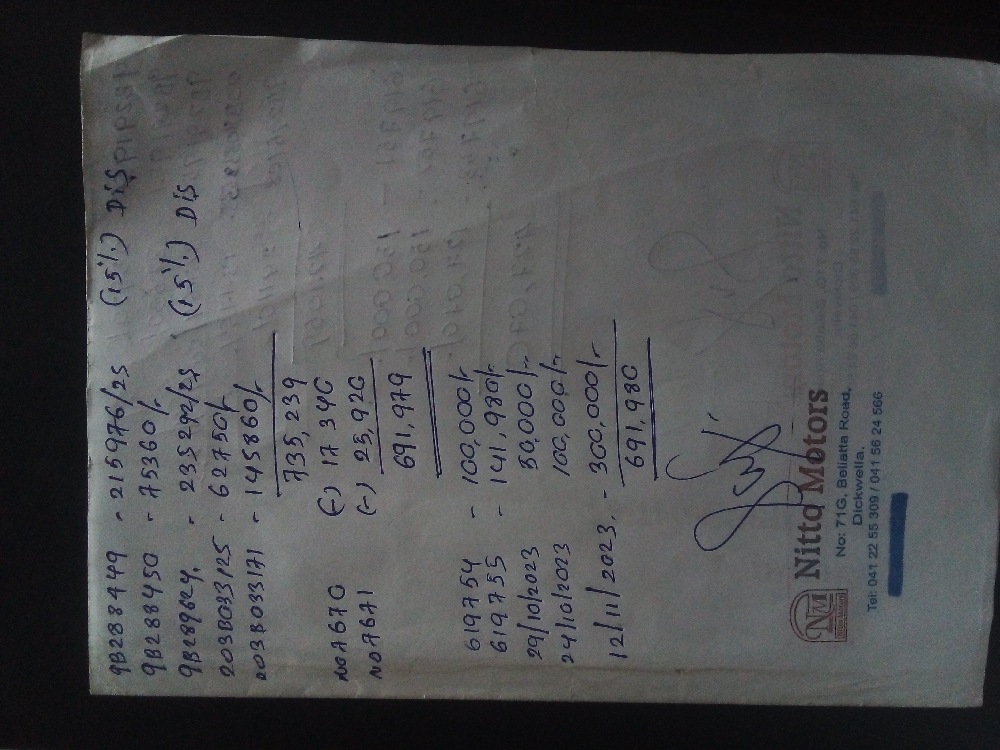 9B288449 - 215976/25 (15%) DIS
9B288450 - 75360/-
9B289624. - 235292/25 (15%) DIS
203B033125 - 62750/-
203B033171 - 145860/-
735,239
NOA670 (-) 17340
NOA671 (-) 25,920
691,979
619754 - 100,000/-
619755 - 141,980/-
29/10/2023 50,000/-
24/10/2023 100,000/-
12/11/2023. - 300,000/-
691,980
NM
Nitto Motors
No: 71G, Beliatta Road,
Dickwella.
Tel: 041 22 55 309 / 041 56 24 566